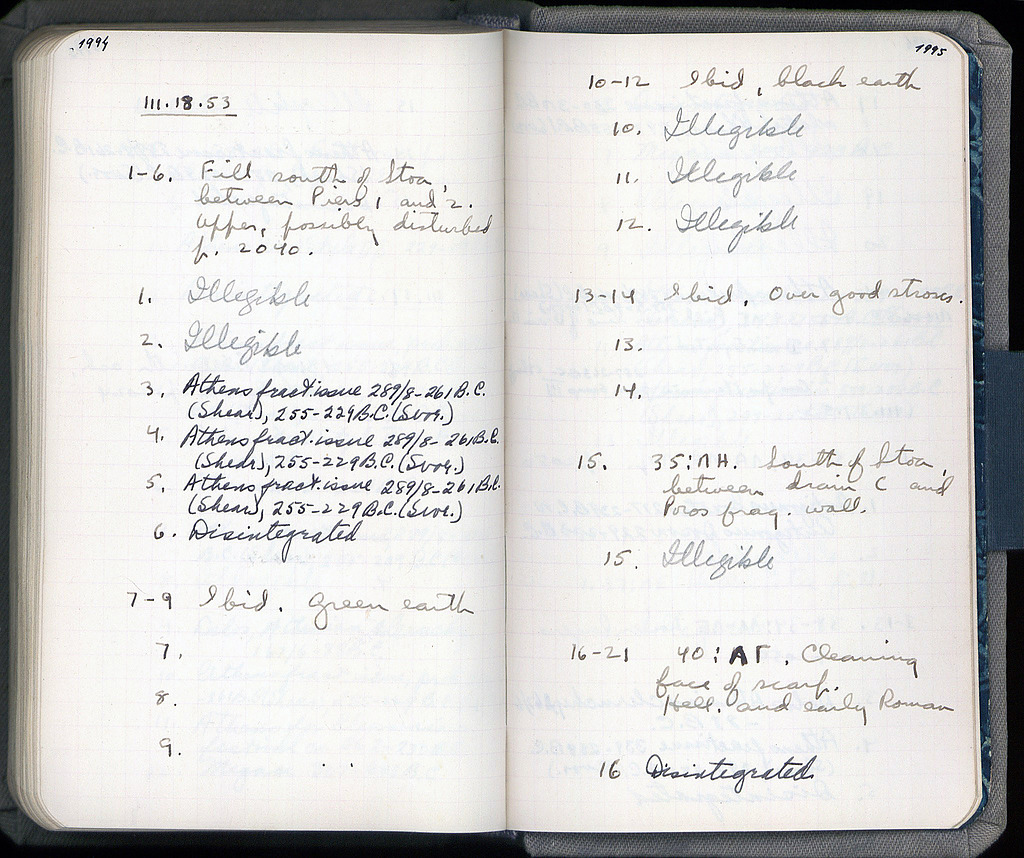 1994
III.18.53
1-6. Fill south of Stoa,
between Piers 1 and 2.
Upper, possibly disturbed
p. 2040.
1. Illegible
2. Illegible
3. Athens fract. issue 289/8-261 B.C.
(Shear), 255-229 B.C. (Svor.)
4. Athens fract. issue 289/8-261 B.C.
(Shear), 255-229 B.C. (Svor.)
5. Athens fract. issue 289/8-261 B.C.
(Shear), 255-229 B.C. (Svor.)
6. Disintegrated
7-9 Ibid. Green earth
7.
8.
9.
1995
10-12 Ibid, black earth
10. Illegible
11. Illegible
12. Illegible
13-14 Ibid, Over good stroses.
13.
14.
15. 35:ΛΗ. South of Stoa,
between drain C and
Poros frag. wall.
15. Illegible
16-21 40:ΑΓ. Cleaning
face of scarp.
Hell. and early Roman
16 Disintegrated